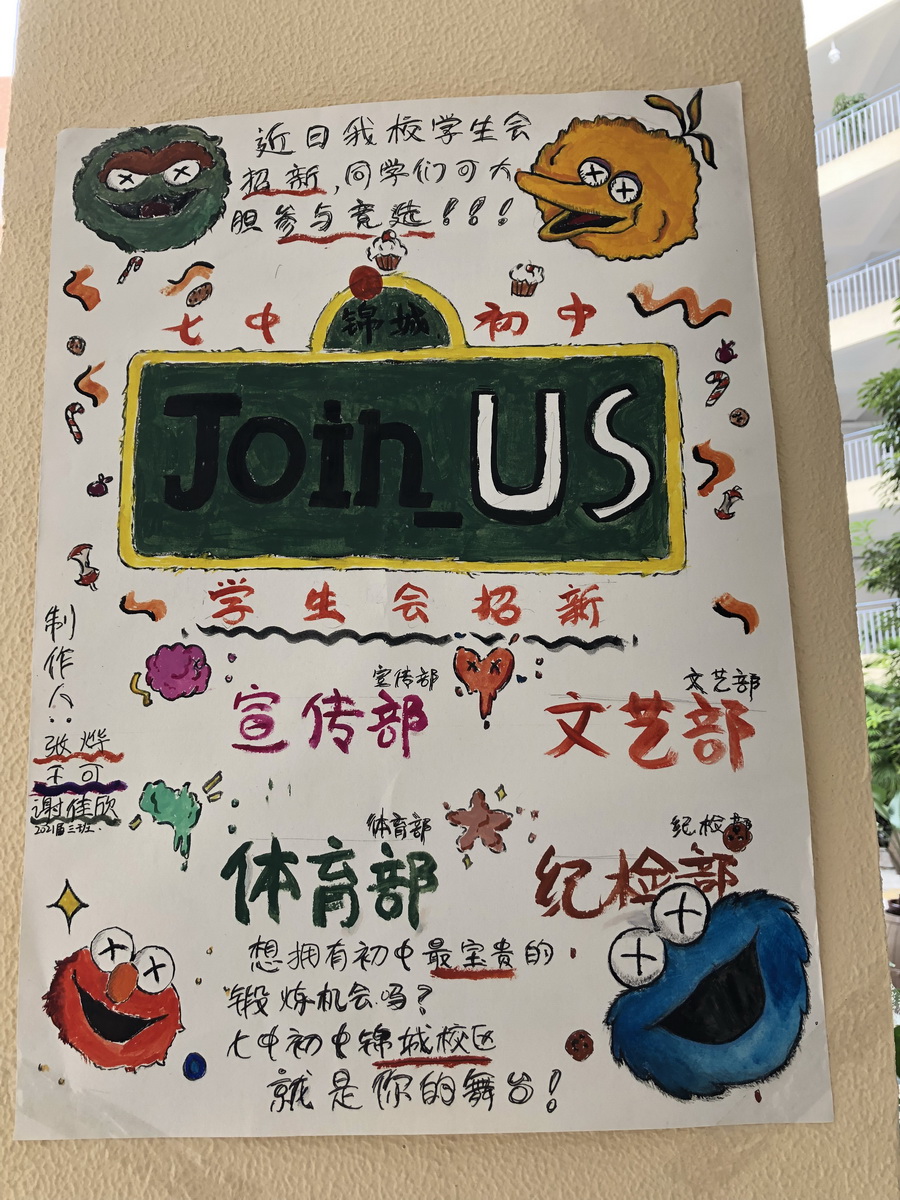 近日我校学生会
招新,同学们可大
胆参与竞选!!!
七中锦城初中
Join_US
学生会招新
制作人:
张烨
王可
谢佳欣
2021届三班.
宣传部
宣传部
文艺部
文艺部
体育部
体育部
纪检部
纪检部
想拥有初中最宝贵的
锻炼机会吗?
七中初中锦城校区
就是你的舞台!